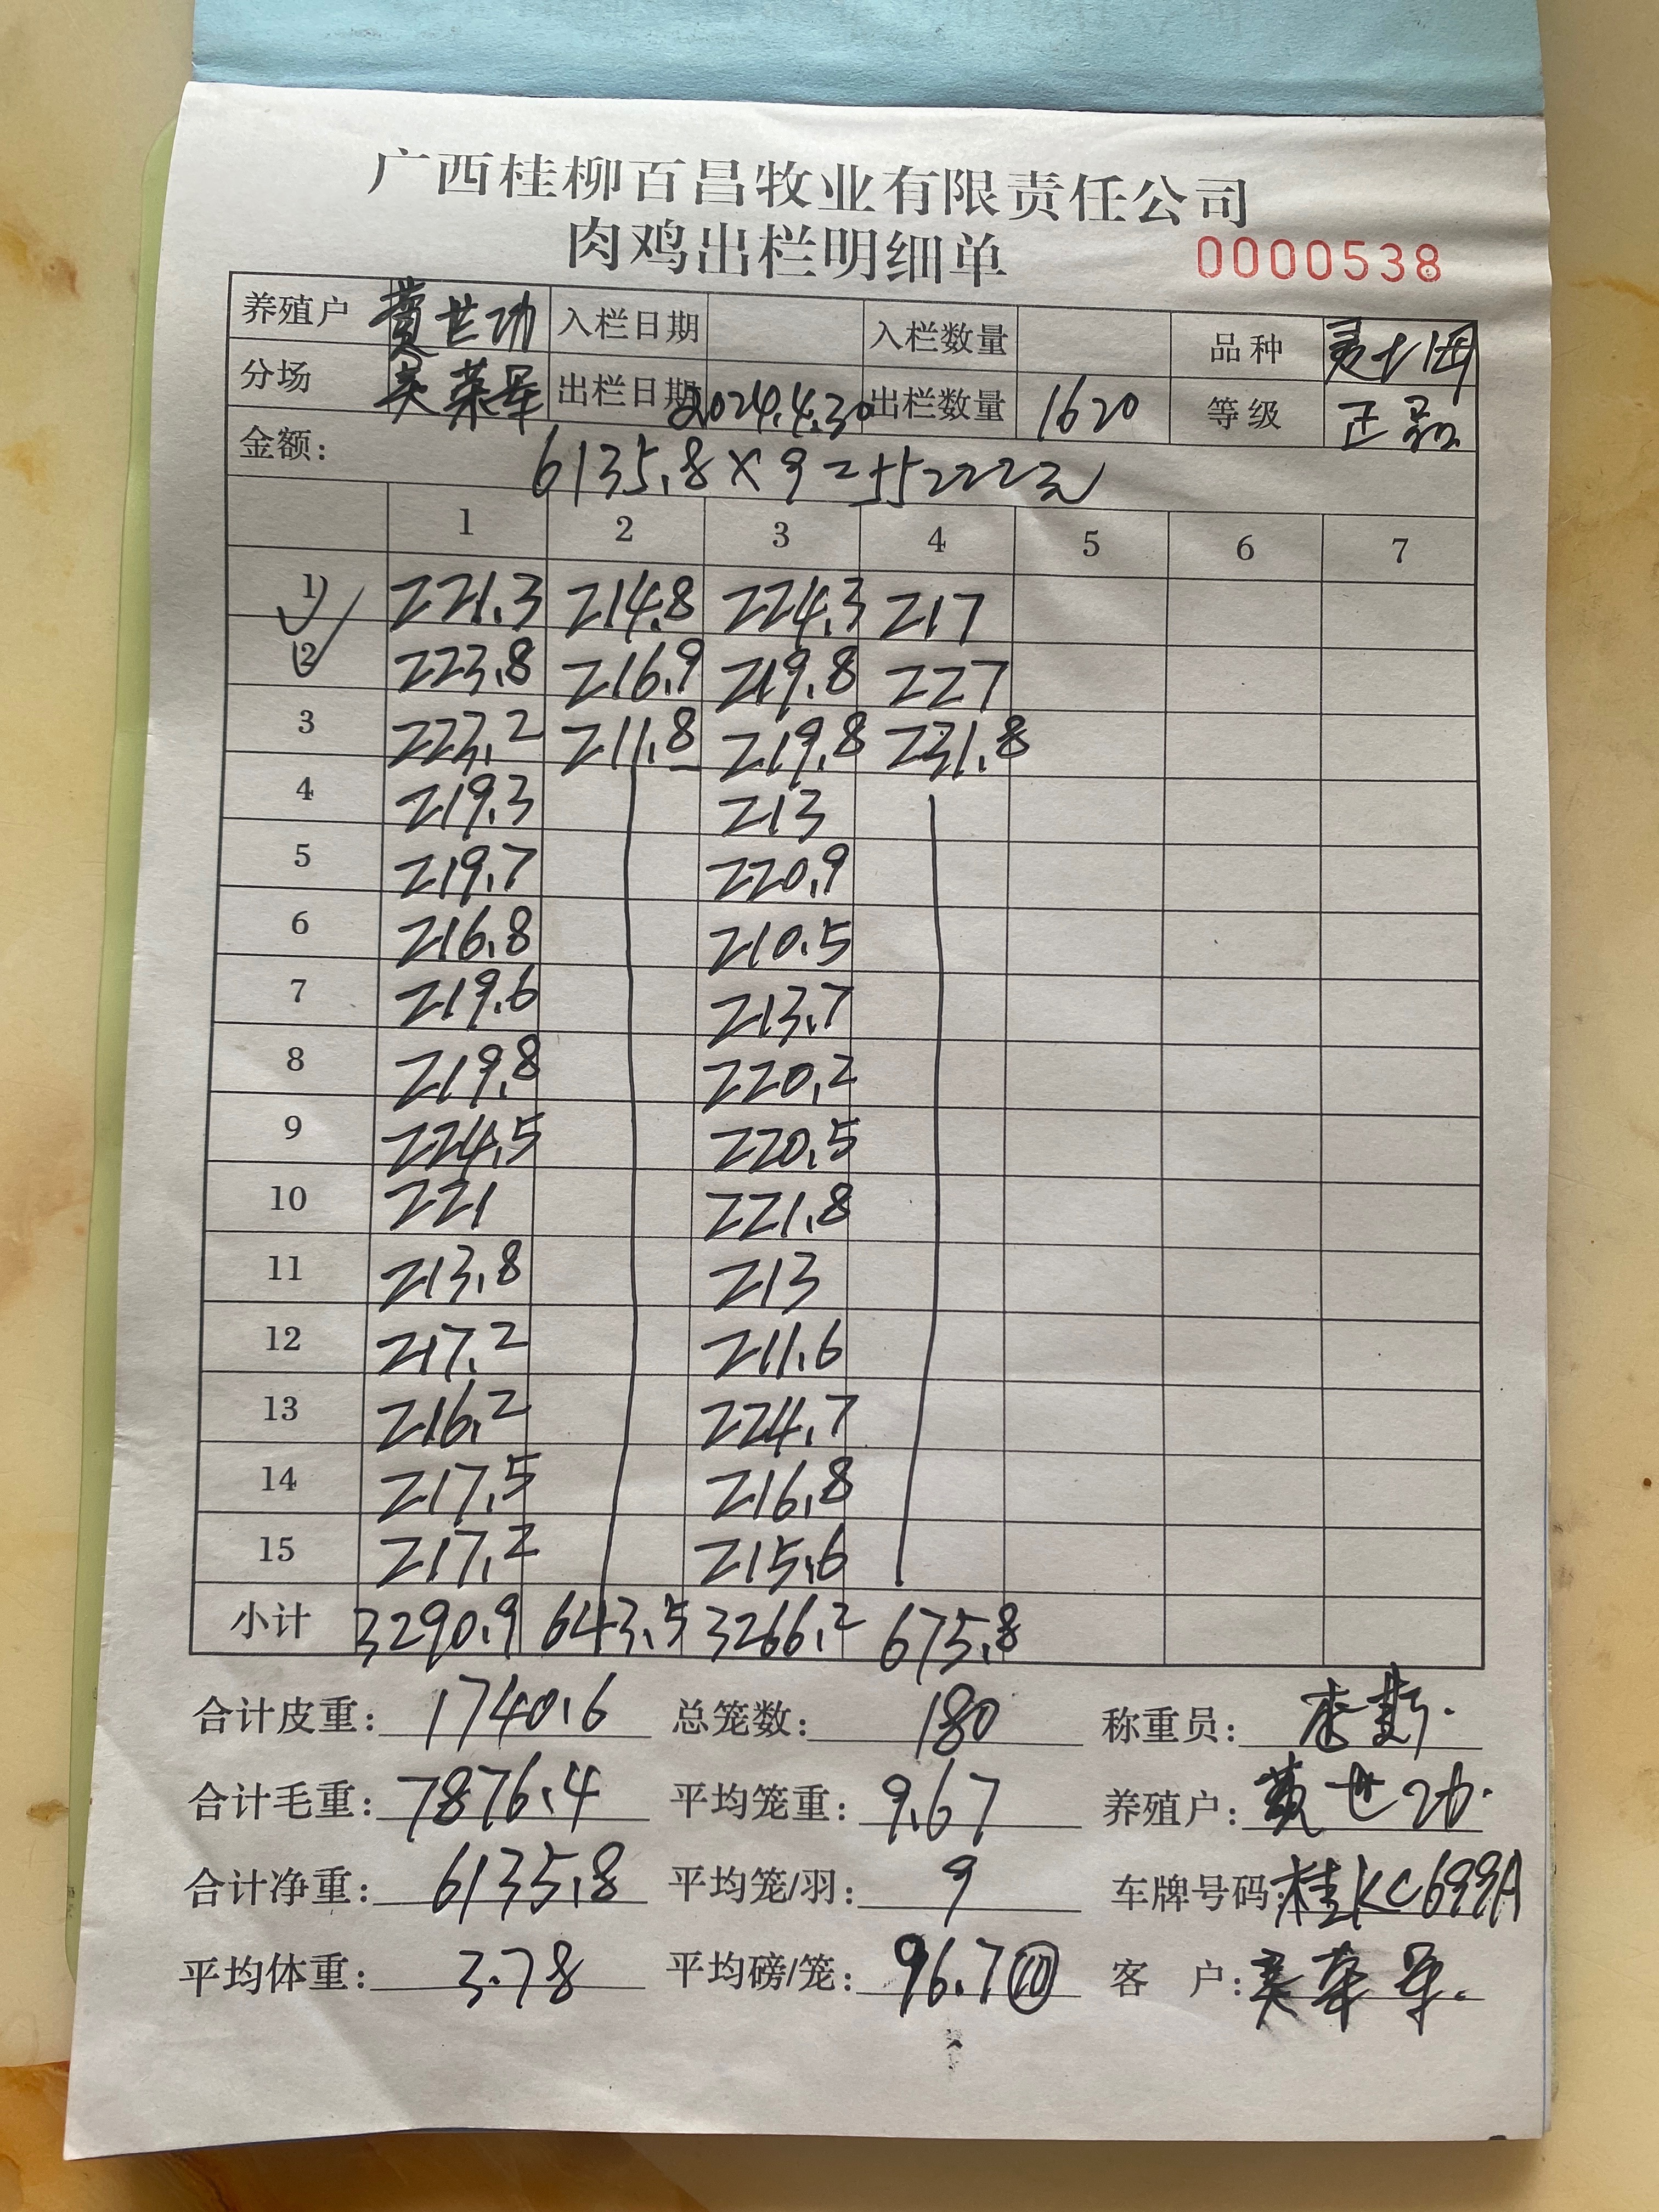 广西桂柳百昌牧业有限责任公司
肉鸡出栏明细单 0000538
养殖户 黄世功 入栏日期 入栏数量 品种
分场 出栏日期 2024.4.30 出栏数量 1620 等级 正品
金额: 6135.8×9=55222元
1 2 3 4 5 6 7
1 221.3 214.8 224.3 217
2 223.8 216.9 219.8 227
3 223.2 211.8 219.8 231.8
4 219.3 213
5 219.7 220.9
6 216.8 210.5
7 219.6 213.7
8 219.8 220.2
9 224.5 220.5
10 221 221.8
11 213.8 213
12 217.2 211.6
13 216.2 224.7
14 217.5 216.8
15 217.2 215.6
小计 3290.9 643.5 3266.2 675.8
合计皮重: 1740.6 总笼数: 180 称重员:
合计毛重: 7876.4 平均笼重: 9.67 养殖户: 黄世功
合计净重: 6135.8 平均笼/羽: 9 车牌号码: 桂KC699A
平均体重: 3.78 平均磅/笼: 96.7 ⑩ 客户: